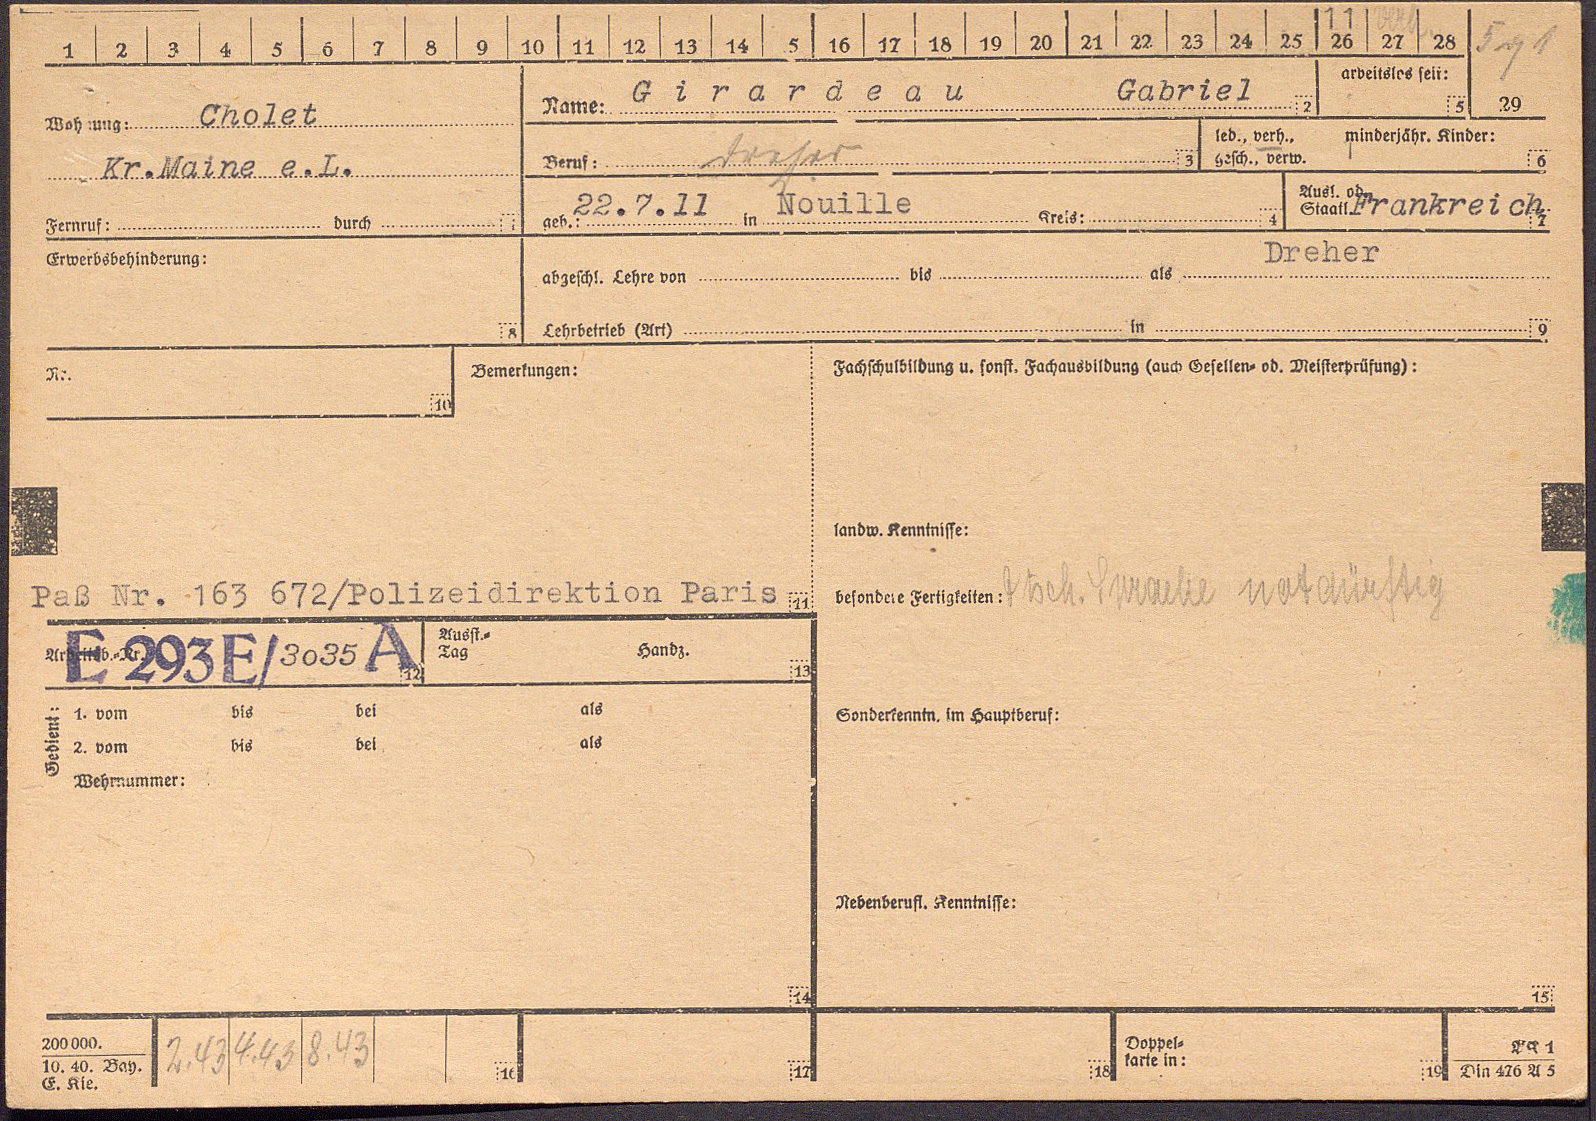 1 2 3 4 5 6 7 8 9 10 11 12 13 14 5 16 17 18 19 20 21 22 23 24 25 26 27 28
11
Wohnung: Cholet
Kr.Maine e.L.
Fernruf: durch
Name: Girardeau Gabriel 2
arbeitslos seit: 5
29
Beruf: Dreher 3
led., verh., gesch., verw.
minderjähr. Kinder: 6
geb.: 22.7.11 in Nouille Kreis: 4
Ausl. od. Staatl. Frankreich 7
Erwerbsbehinderung: 8
Dreher
abgeschl. Lehre von bis als
Lehrbetrieb (Art) in 9
Nr. 10
Bemerkungen:
Fachschulbildung u. sonst. Fachausbildung (auch Gesellen- od. Meisterprüfung) :
landw. Kenntnisse:
Paß Nr. 163 672/Polizeidirektion Paris 11
besondere Fertigkeiten: dtsch. Sprache notdürftig
Arbeitsb.-Nr. E 293E/3035 A 12
Ausst.-Tag Handz. 13
Gedient:
1. vom bis bei als
2. vom bis bei als
Wehrnummer:
Sonderkenntn. im Hauptberuf:
Nebenberufl. Kenntnisse:
14
15
200 000.
10. 40. Bay.
E. Kie.
2.43 4.43 8.43
16
17
18
Doppel-
karte in:
19
AK 1
Din 476 A 5